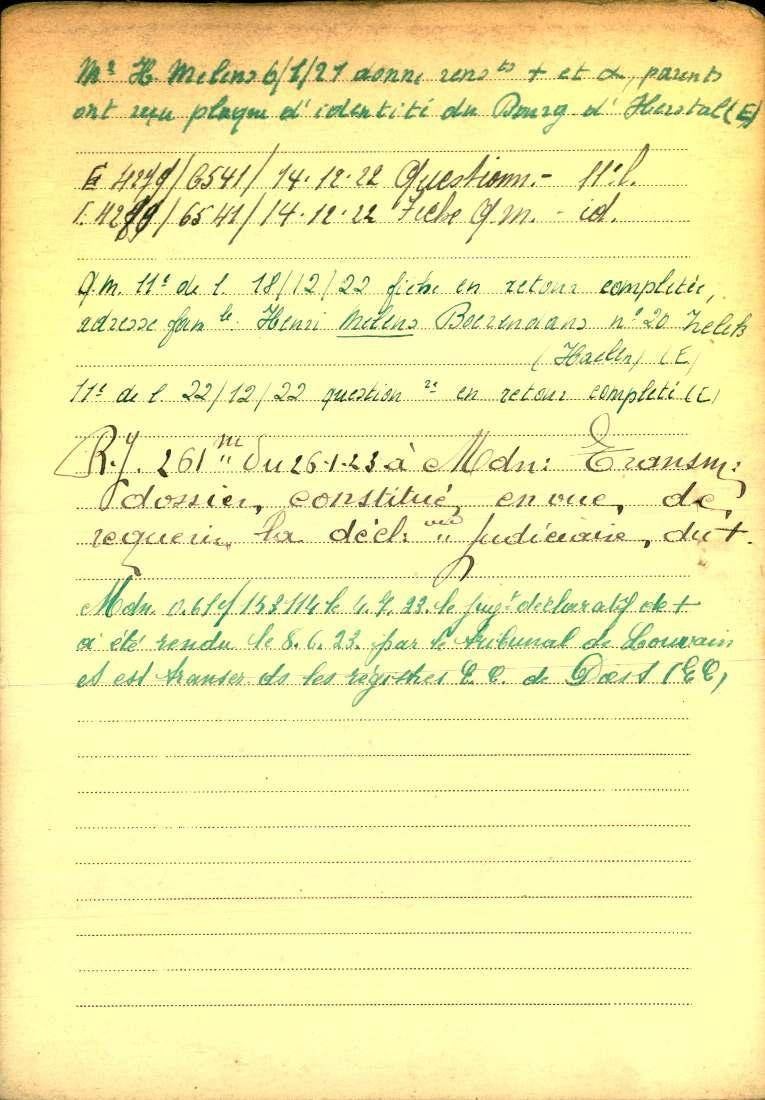 Mr H. Melens 6/1/21 donne rensts + et α, parents
ont reçu plaque d'identité du Bourg d'Herstal (E)
E 4279/6541/14.12.22 Questionn.- 11e l.
E. 4279/6541/14.12.22 Fiche Q.M. - id.
Q.M. 11e de l 18/12/22 fiche en retour complétée,
adresse famle: Henri Melens Boerendans no 20 Zelck
(Haelen) (E)
11e de l 22/12/22 question re en retour complété (E)
R.J. 261 m " du 26-1-23 à Mdn: Transm:
dossier, constitué, en vue, de,
requérir, la décl: " judiciaire, du +.
Mdn 153114 le 4.7.23. le jugt déclaratif de +
a été rendu le 8.6.23. par le tribunal de Louvain
et est transcr ds les régistres E.C. de Diest (EE)